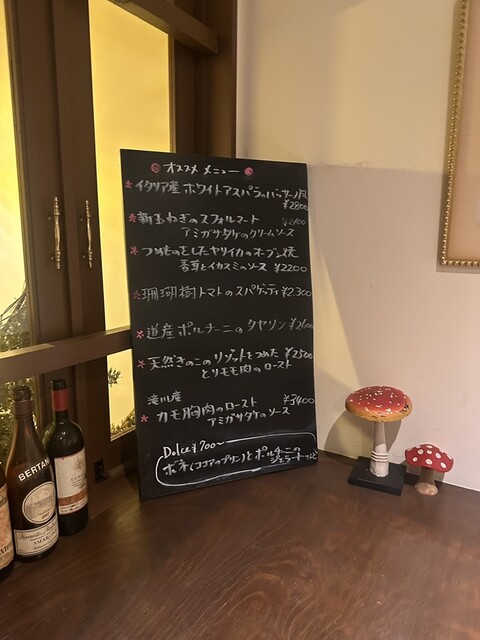 オススメ メニュー
イタリア産 ホワイトアスパラのバッサーノ風
¥2800
新玉ねぎのスフォルマート
アミガサタケのクリームソース
つめものをしたヤリイカのオーブン焼
とイカスミのソース ¥2200
珊瑚樹トマトのスパゲッティ ¥2.300
道産ポルチーニのタヤリン ¥2600
天然きのこのリゾットをつめた ¥2500
とりモモ肉のロースト
滝川産
カモ胸肉のロースト ¥3400
アミガサタケのソース
Dolce ¥700〜
ボネ(ココアのプリン)とポルチーニの
ジェラートなど
BERTANI